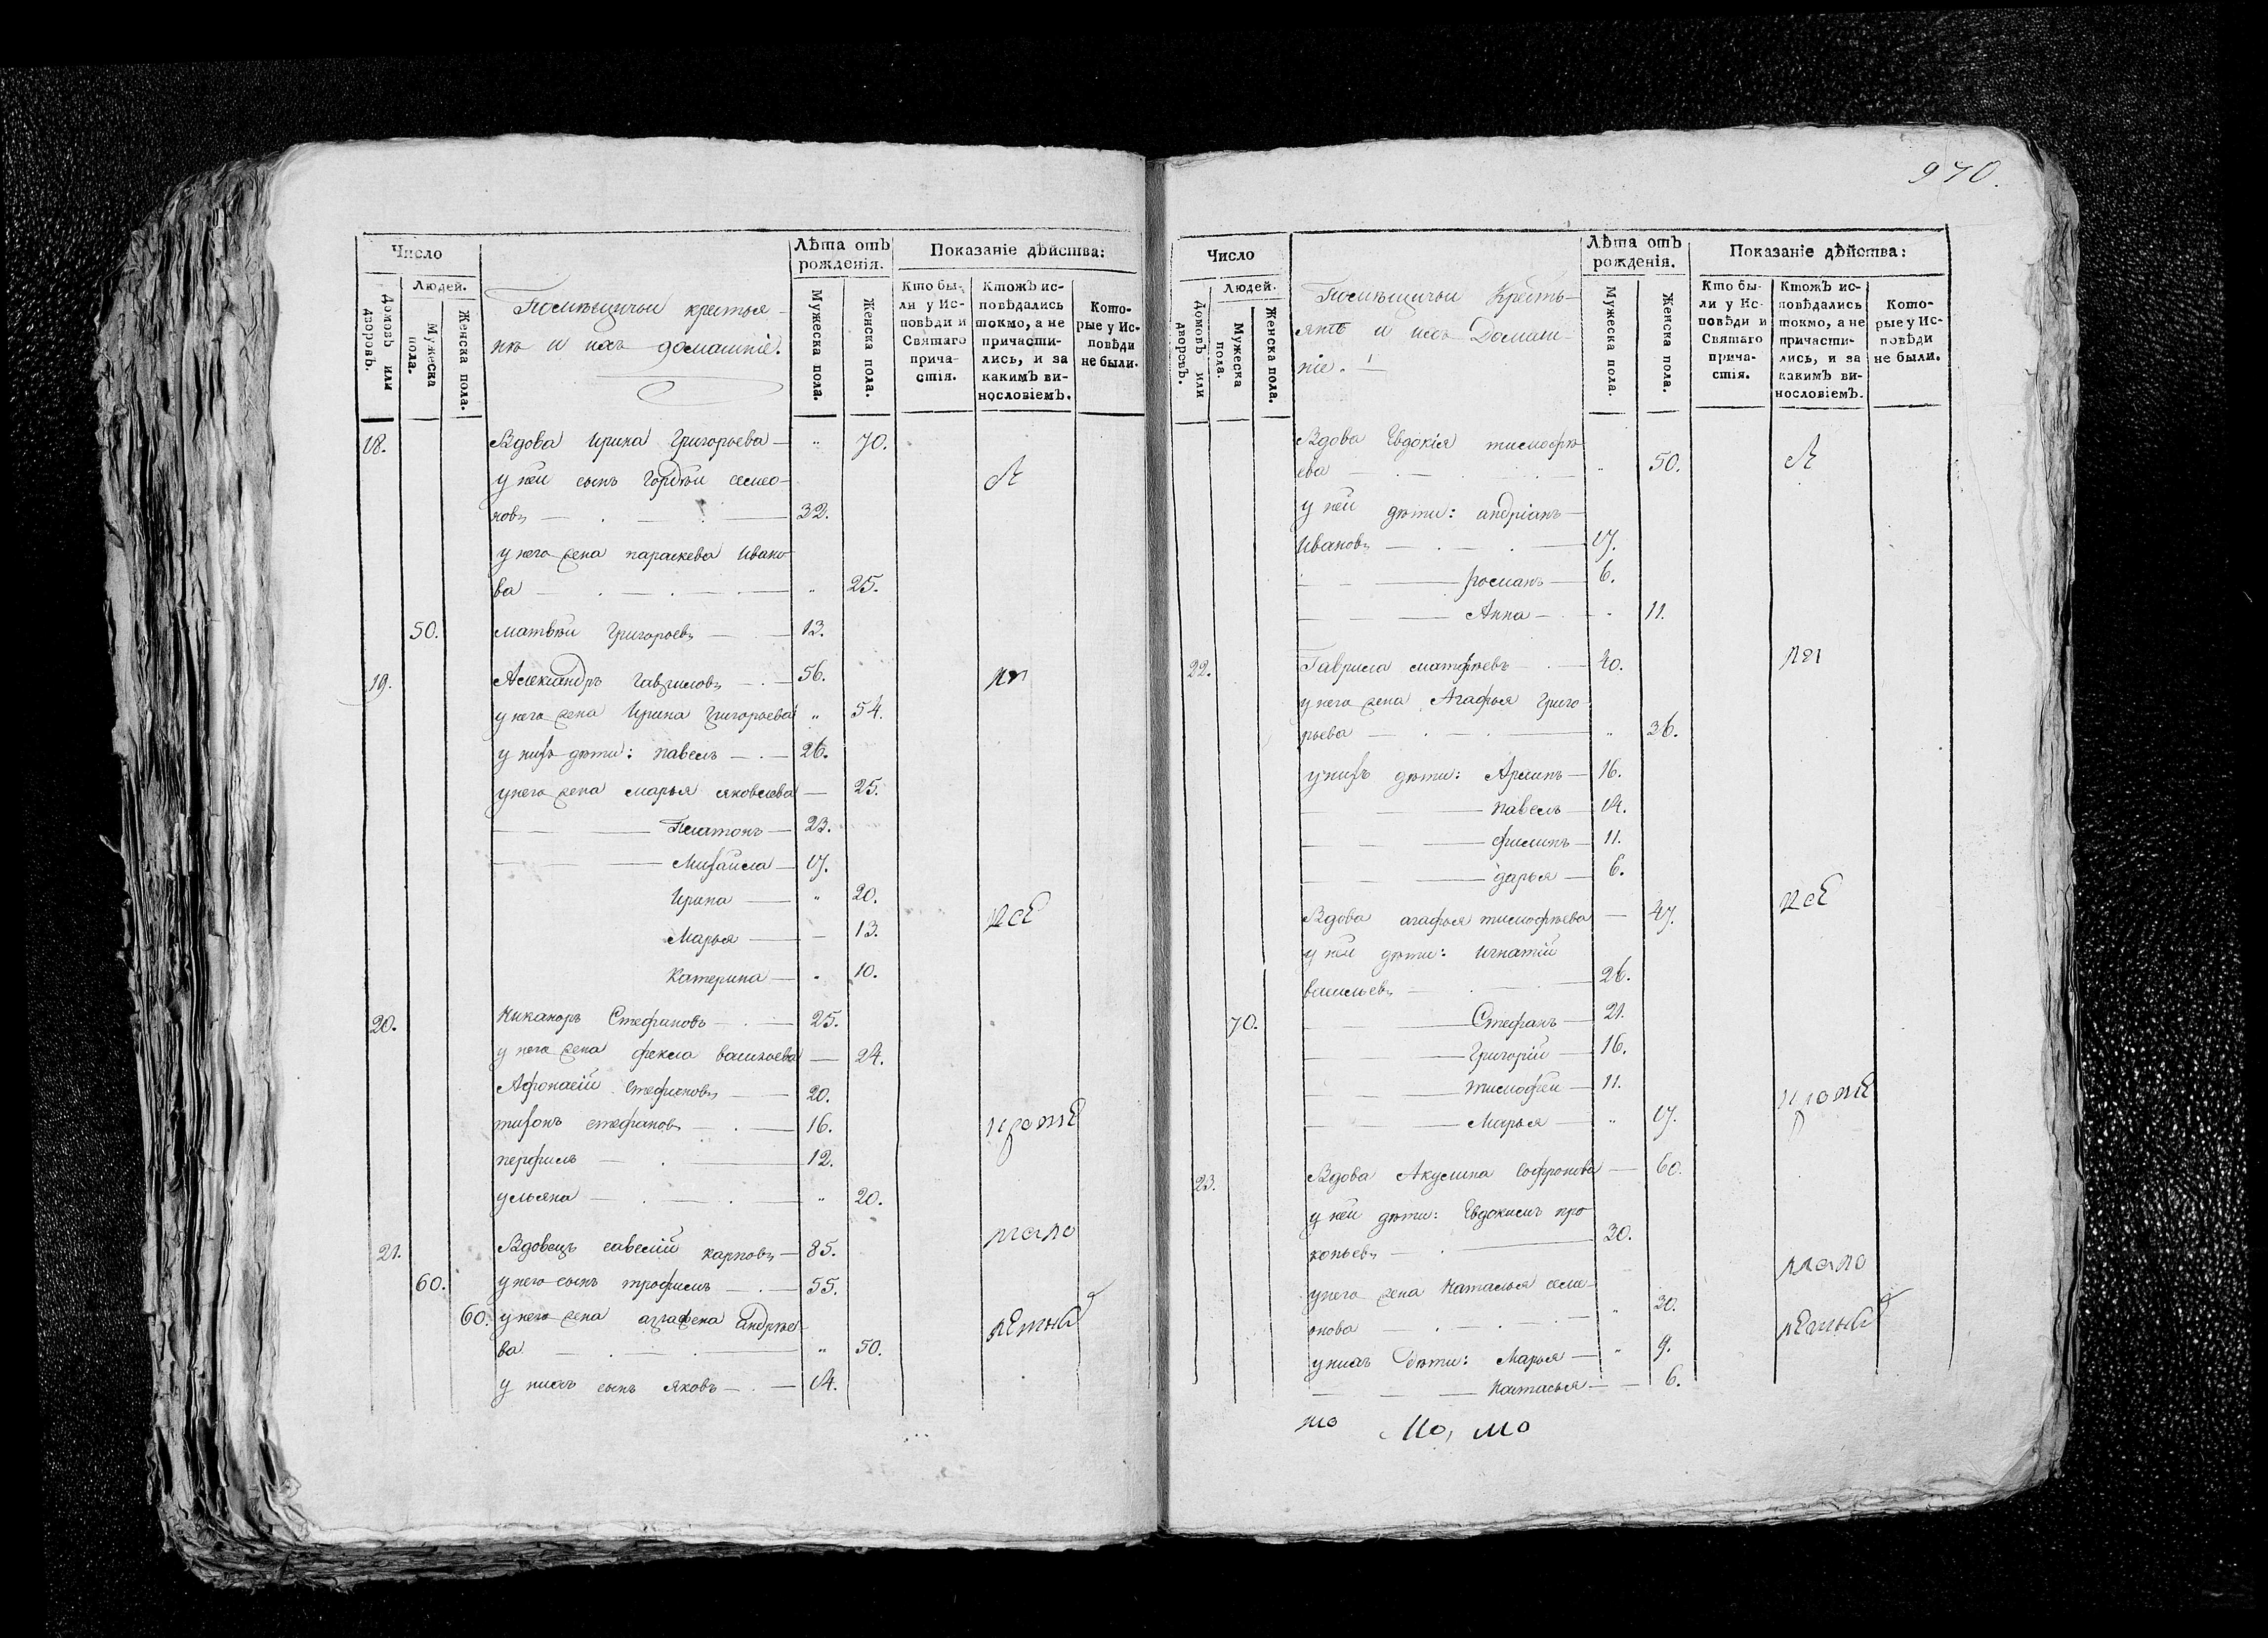 970.
Число
Людей.
Домовъ или дворовъ.
Мужеска пола.
Женска пола.
Помѣщичьи крестья-
нѣ и ихъ домашніе.
Лѣта отъ рожденія.
Мужеска пола.
Женска пола.
Показаніе дѣйства:
Кто бы-
ли у Ис-
повѣди и
Святаго
прича-
стія.
Ктожъ ис-
повѣдались
токмо, а не
причасти-
лись, и за
какимъ ви-
нословіемъ.
Кото-
рые у Ис-
повѣди
не были.
18. Вдова Ирина Григорьева — „ 70.
у ней сынъ Гордѣй семіо-
новъ — 32.
у него жена параскева Ивано-
ва — „ 25.
50. матвѣй Григорьевъ — 13.
19. Александръ Гавриловъ — 56.
у него жена Ирина Григорьева „ 54.
у нихъ дѣти: павелъ — 26.
у него жена марья яковлева — 25.
— Платонъ — 23.
— Михайла — 17.
Ирина — „ 20.
Марья — 13.
Катерина — 10.
20. Никаноръ Стефановъ — 25.
у него жена фекла васильева — 24.
Афонасій Стефановъ — 20.
тихонъ стефановъ — 16.
перфилъ — 12.
ульяна — „ 20.
21. Вдовецъ савелій карповъ — 85.
60. у него сынъ трофимъ — 55.
60. у него жена аграфена андрѣе-
ва — „ 50.
у нихъ сынъ яковъ — 14.
Число
Людей.
Домовъ или дворовъ.
Мужеска пола.
Женска пола.
Помѣщичьи Кресть-
янѣ и ихъ Домаш-
ніе.
Лѣта отъ рожденія.
Мужеска пола.
Женска пола.
Показаніе дѣйства:
Кто бы-
ли у Ис-
повѣди и
Святаго
прича-
стія.
Ктожъ ис-
повѣдались
токмо, а не
причасти-
лись, и за
какимъ ви-
нословіемъ.
Кото-
рые у Ис-
повѣди
не были.
Вдова Евдокія тимофѣ-
ева — „ 50.
у ней дѣти: андріанъ
Ивановъ — 17.
— романъ — 6.
— Анна — 11.
22. Гаврила матфѣевъ — 40.
у него жена Агафья Григо-
рьева — „ 36.
у нихъ дѣти: Архипъ — 16.
— павелъ — 14.
— филипъ — 11.
— дарья — 6.
Вдова агафья тимофѣева — 47.
у ней дѣти: игнатій
васильевъ — 26.
70. — Стефанъ — 21.
— Григорій — 16.
— тимофей — 11.
— Марья — „ 17.
23. Вдова Акулина Софронова — 60.
у ней дѣти: Евдокимъ про-
копьевъ — 30.
у него жена Наталья семи-
онова — „ 30.
у нихъ дѣти: Марья — „ 9.
— Наталья — 6.